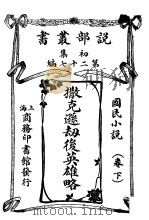 說部叢書
初集
第二十七編
國民小說
（卷下）
撒克遜劫後英雄略
上海
商務印書館發行